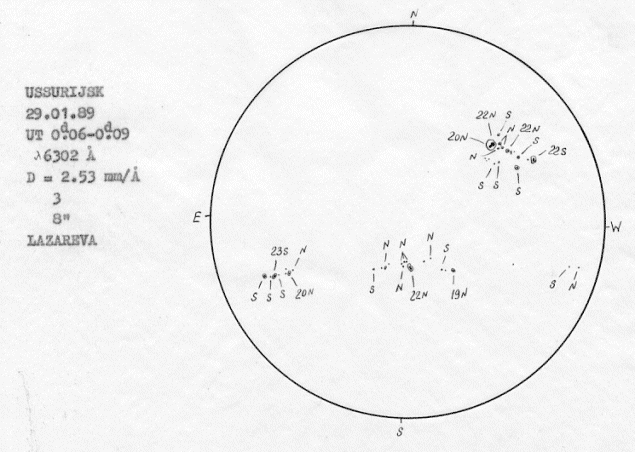 USSURIJSK
29.01.89
UT 0ᵈ.06-0ᵈ.09
λ6302 Å
D = 2.53 mm/Å
3
8"
LAZAREVA
N
22N S
N 22N
20N S
N 22S
S S S
E
W
N N N S
23S N
S S S 20N
S N 22N 19N
S N
S